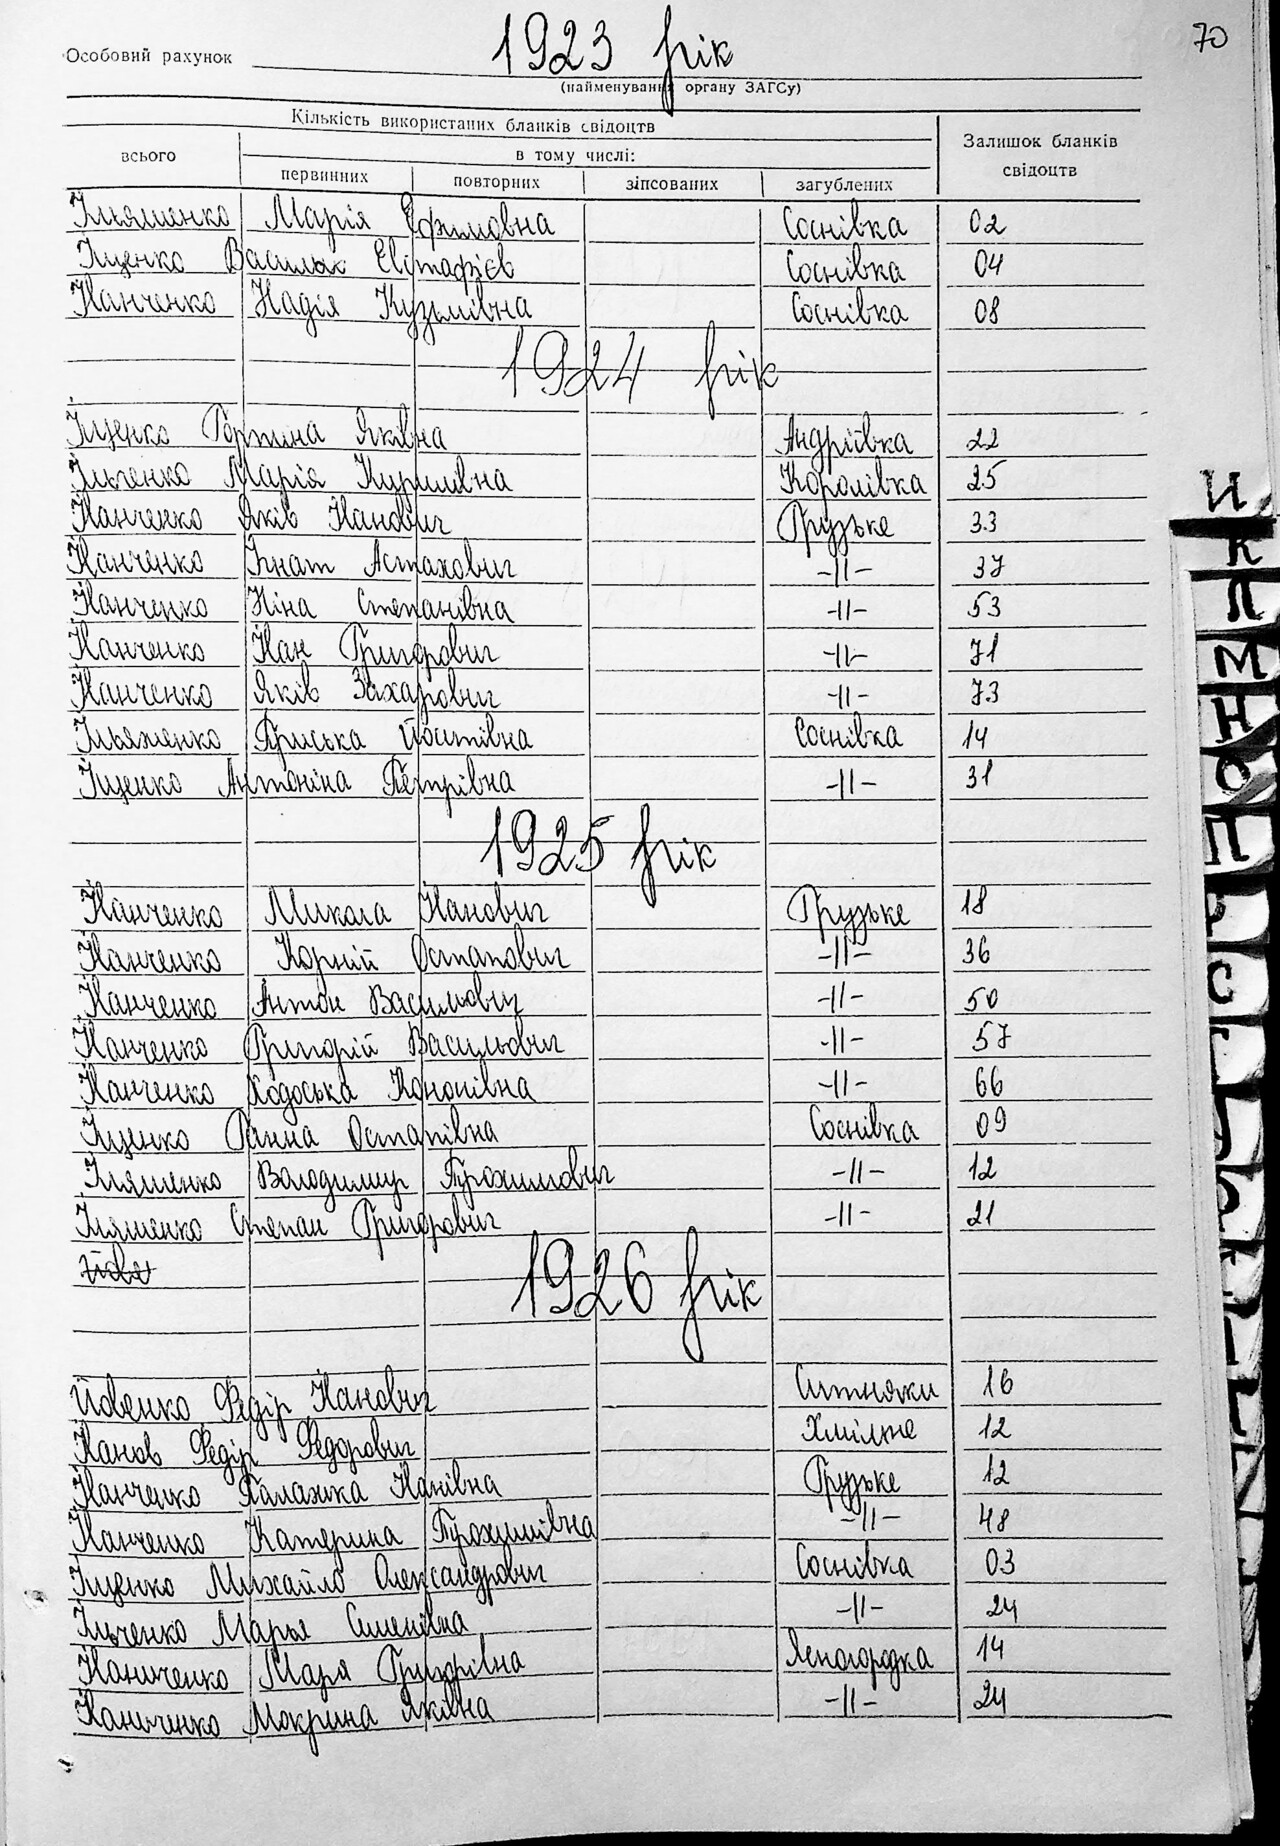 70
1923 рік
Особовий рахунок
(найменування органу ЗАГСу)
Кількість використаних бланків свідоцтв
всього в тому числі: Залишок бланків свідоцтв
первинних повторних зіпсованих загублених
Ільяшенко Марія Єфимовна Соснівка 02
Іщенко Василь Євстафієв Соснівка 04
Іванченко Надія Кузьмівна Соснівка 08
1924 рік
Іщенко Горпина Яківна Андріївка 22
Ільченко Марія Королівка 25
Іванченко Яків Іванович Грузьке 33
Іванченко Ігнат Астахович -||- 37
Іванченко Ніна Степанівна -||- 53
Іванченко Іван Григорович -||- 71
Іванченко Яків Захарович -||- 73
Ільяшенко Приська Йоситівна Соснівка 14
Іщенко Антоніна Петрівна -||- 31
1925 рік
Іванченко Микола Іванович Грузьке 18
Іванченко Корній Остапович -||- 36
Іванченко Антон Васильович -||- 50
Іванченко Григорій Васильович -||- 57
Іванченко Ходоська Кононівна -||- 66
Іщенко Ганна Остапівна Соснівка 09
Іляшенко Володимир Трохимович -||- 12
Іляшенко Степан Григорович -||- 21
1926 рік
Йовенко Федір Іванович Ситняки 16
Іванов Федір Федорович Хмільне 12
Іванченко Палажка Іванівна Грузьке 12
Іванченко Катерина Трохимівна -||- 48
Іщенко Михайло Олександрович Соснівка 03
Ільченко Марья Сименівна -||- 24
Іваниченко Марія Григорівна Ясногородка 14
Іваниченко Мокрина Яківна -||- 24
И
К
Л
М
Н
О
П
С